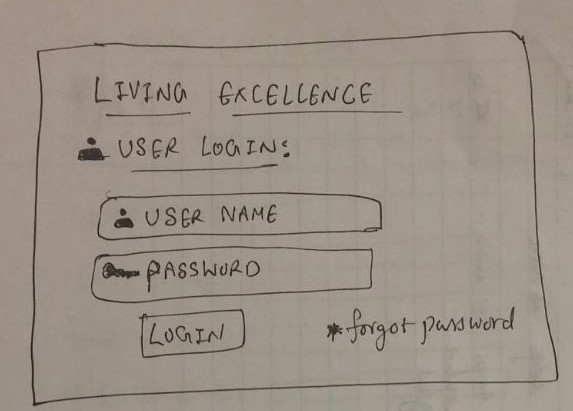 LIVING EXCELLENCE
USER LOGIN:
USER NAME
PASSWORD
LOGIN
*forgot password